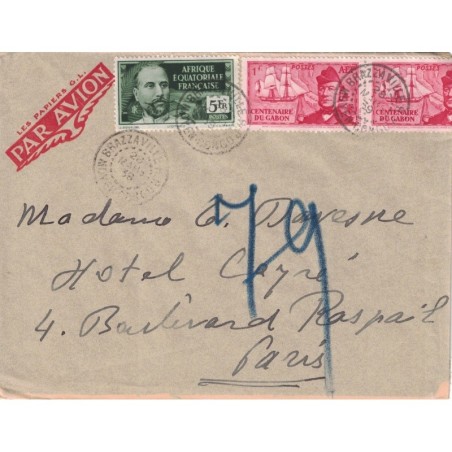 LES PAPIERS G.L.
PAR AVION
AFRIQUE
ÉQUATORIALE
FRANÇAISE
5 FR
POSTES
POSTES
CENTENAIRE
DU GABON
POSTES
CENTENAIRE
DU GABON
BRAZZAVILLE
BRAZZAVILLE
Madame
Hotel Cayré
4. Boulevard Raspail
Paris
79